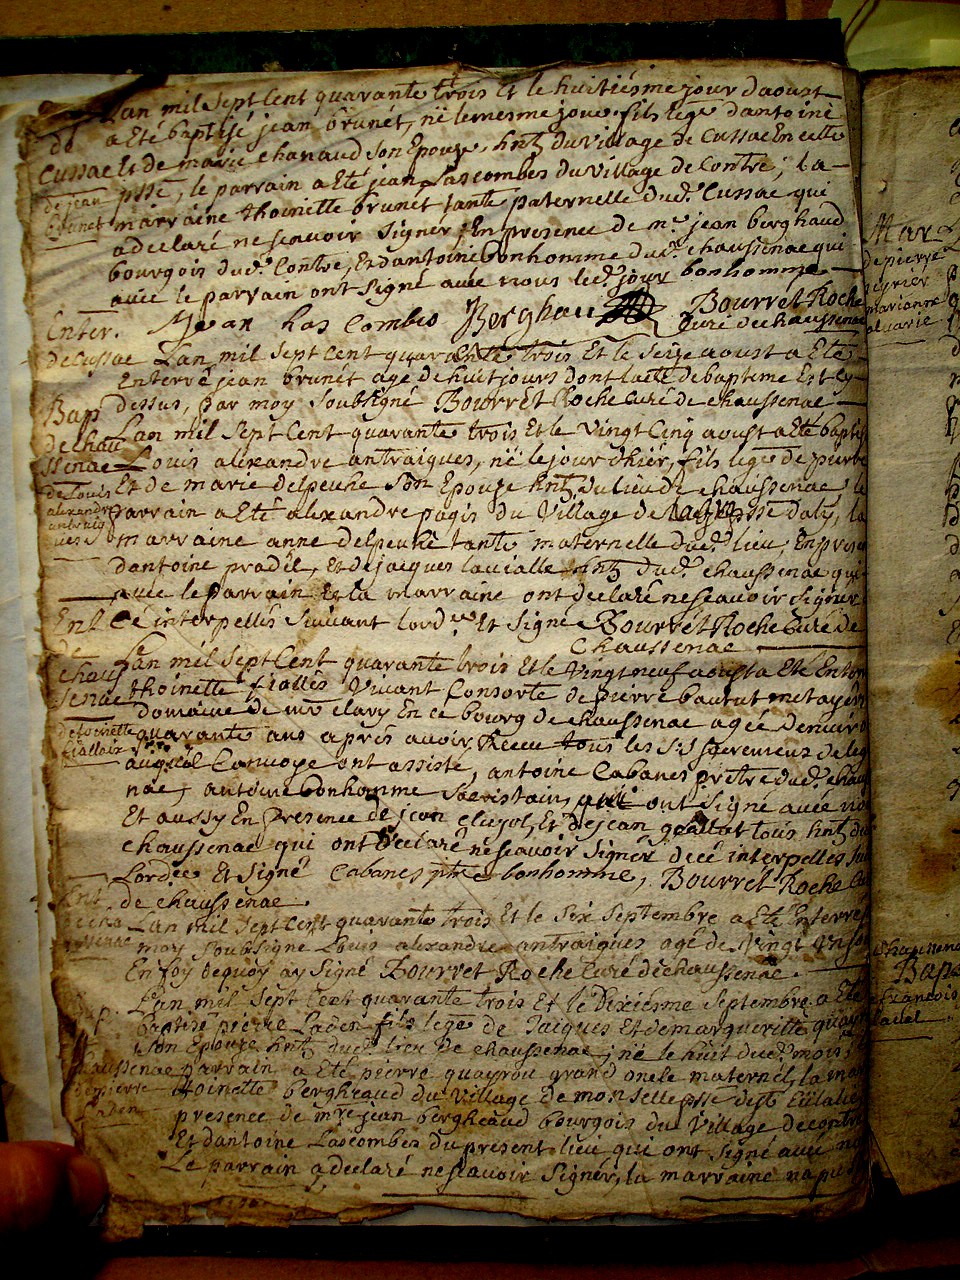 Lan mil Sept Cent quarante trois Et le huitiesme jour daoust
de a Eté baptisé jean brunet, né le mesme jour fils lege dantoine
Cussac Et de marie chanaud Son Epouze, hnts du village de Cussac En cette
de jean psse, le parrain a Eté jean Lascombes du village de Contre, La
brunet marraine thoinette brunet tante paternelle dud. Cussac qui
a declaré ne scavoir Signér, En presence de mr. jean berghaud
bourgois dud. Contre, Et dantoine bonhomme dud. chaussenac qui
avec le parrain ont signé avec nous led. jour bonhomme
Enter. Jean Las Combes Berghau Bourret Roche
Curé de chaussenac
de Cussac Lan mil Sept Cent quarante trois Et le Seize aoust a Eté
Enterré jean brunet agé de huit jours dont lacte de bapteme Est cy
Bap dessus, par moy Soubsigné Bourret Roche Curé de chaussenac
de chau Lan mil Sept Cent quarante trois Et le Vingt Cinq aoust a Eté baptis
ssenac Louis alexandre antraigues, né le jour d'hier, fils lege de pierre
de Louis Et de marie delpeuhe Son Epouze hnts du lieu de chaussenac le
alexandre parrain a Eté alexandre pagis du Village de psse daly, la
antraig
ues marraine anne delpeuhe tante maternelle dud. lieu, En pres
dantoine pradel, Et de jacques lavialle hnts dud. chaussenac qui
avec le parrain Et la marraine ont declaré ne scavoir Signér
Ent de ce interpellés Suivant lord.ce Et Signé Bourret Roche Curé de
Chaussenac
de
chaus Lan mil Sept Cent quarante trois Et le Vingt neuf aoust a Eté Enterr
senac thoinette fialles Vivant Consorte de pierre bautut metayer
domaine de mr clary En ce bourg de chaussenac agée denviro
de toinette quarante ans apres avoir Receu tous les Sts Sacremens de leg
fialleix auquel Convoye ont assisté, antoine Cabanes prêtre dud. chau
nac, antoine bonhomme Sacristain, qui ont Signé avec no
Et aussy En Presence de jean clujol, Et de jean tous hnts du
chaussenac qui ont declaré ne scavoir Signér de ce interpelles Sui
Lordce Et Signé Cabanes ptre bonhomme, Bourret Roche Cu
Ent. de chaussenac
Lan mil Sept Cent quarante trois Et le Six Septembre a Eté Enterré
moy Soubsigné Louis alexandre antraigues agé de Vingt un jo
En foy dequoy ay Signé Bourret Roche Curé de chaussenac
Bap. Lan mil Sept Cent quarante trois Et le Dixiesme Septembre a Eté
baptisé pierre Laden fils lege de Jacques Et de marguerite quayr
Son Epouze hnts dud. lieu de chaussenac, né le huit dud. mois
chaussenac parrain a Eté pierre quayrou grand oncle maternel, la mar
de pierre thoinette bergheaud du Village de monselle psse de St Eulalie
Laden presence de mre jean bergheaud bourgois du Village de contre
Et dantoine Lascombes du present lieu qui ont signé avec no
Le parrain a declaré ne scavoir Signér, la marraine na pu
Mar
de pierre
marianne
Bap
francois